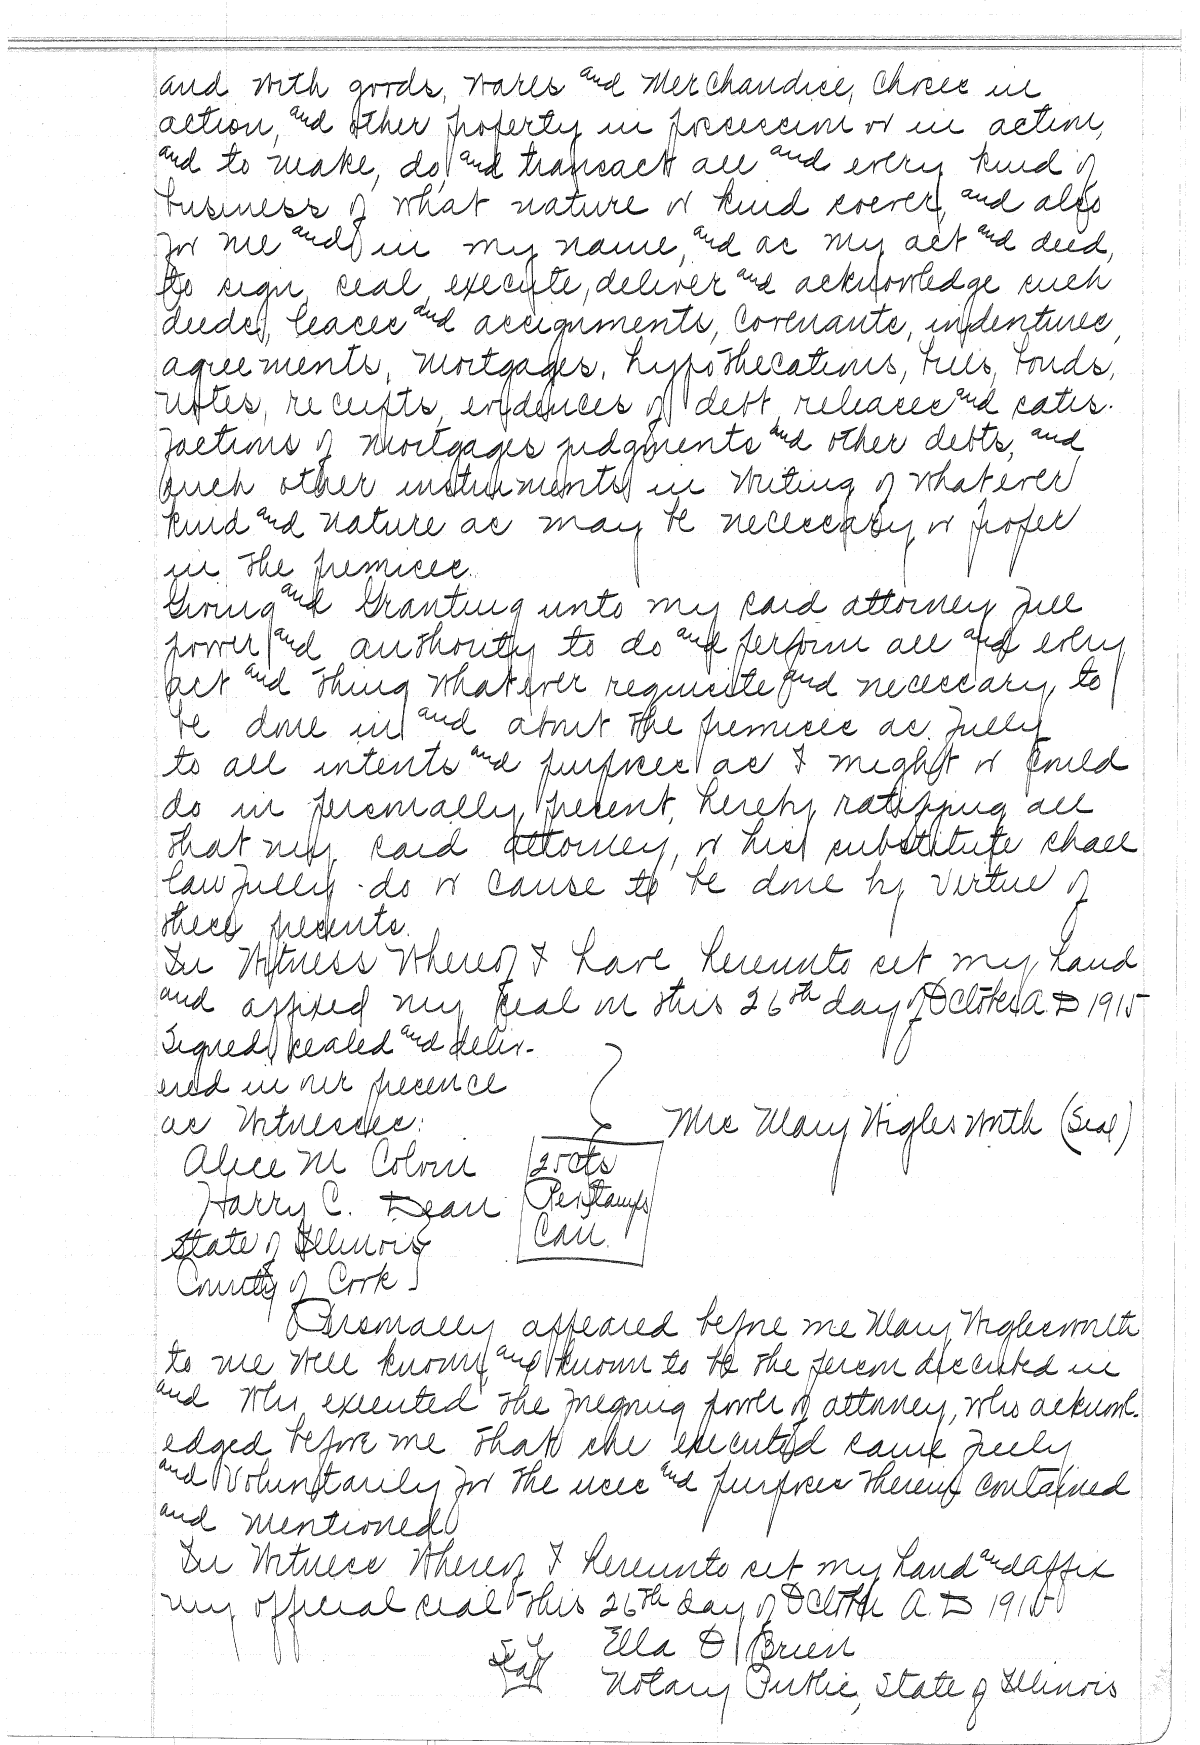 and with goods, wares and Merchandise, choses in
action, and other property in possession or in action,
and to make, do, and transact all and every kind of
business of what nature or kind soever, and also
for me and in my name, and as my act and deed,
to sign, seal, execute, deliver and acknowledge such
deeds, leases and assignments, Covenants, indentures,
agreements, Mortgages, hypothecations, bills, bonds,
notes, receipts, evidences of debt, releases and satis-
factions of Mortgages judgments and other debts, and
such other instruments in writing of whatever
kind and nature as may be necessary or proper
in the premises.
Giving and Granting unto my said attorney full
power and authority to do and perform all and every
act and thing whatever requisite and necessary, to
be done in and about the premises as fully
to all intents and purposes as I might or could
do in personally present, hereby ratifying all
that my said attorney, or his substitute shall
lawfully do or cause to be done by virtue of
these presents.
In Witness Whereof I have hereunto set my hand
and affixed my seal on this 26th day of October A.D 1915
Signed, sealed and deliv-
ered in our presence
as Witnesses:
Mrs Mary Wiglesworth (Seal)
Alice M Colvin
25 cts
Harry C. Dean
Rev Stamps
State of Illinois
Can.
County of Cook
Personally appeared before me Mary Wiglesworth
to me well known, and known to be the person described in
and who executed the foregoing power of attorney, who acknowl-
edged before me that she executed same freely
and voluntarily for the uses and purposes therein contained
and mentioned
In Witness Whereof I hereunto set my hand and affix
my official seal this 26th day of October A.D 1915
Seal
Ella O'Brien
Notary Public, State of Illinois